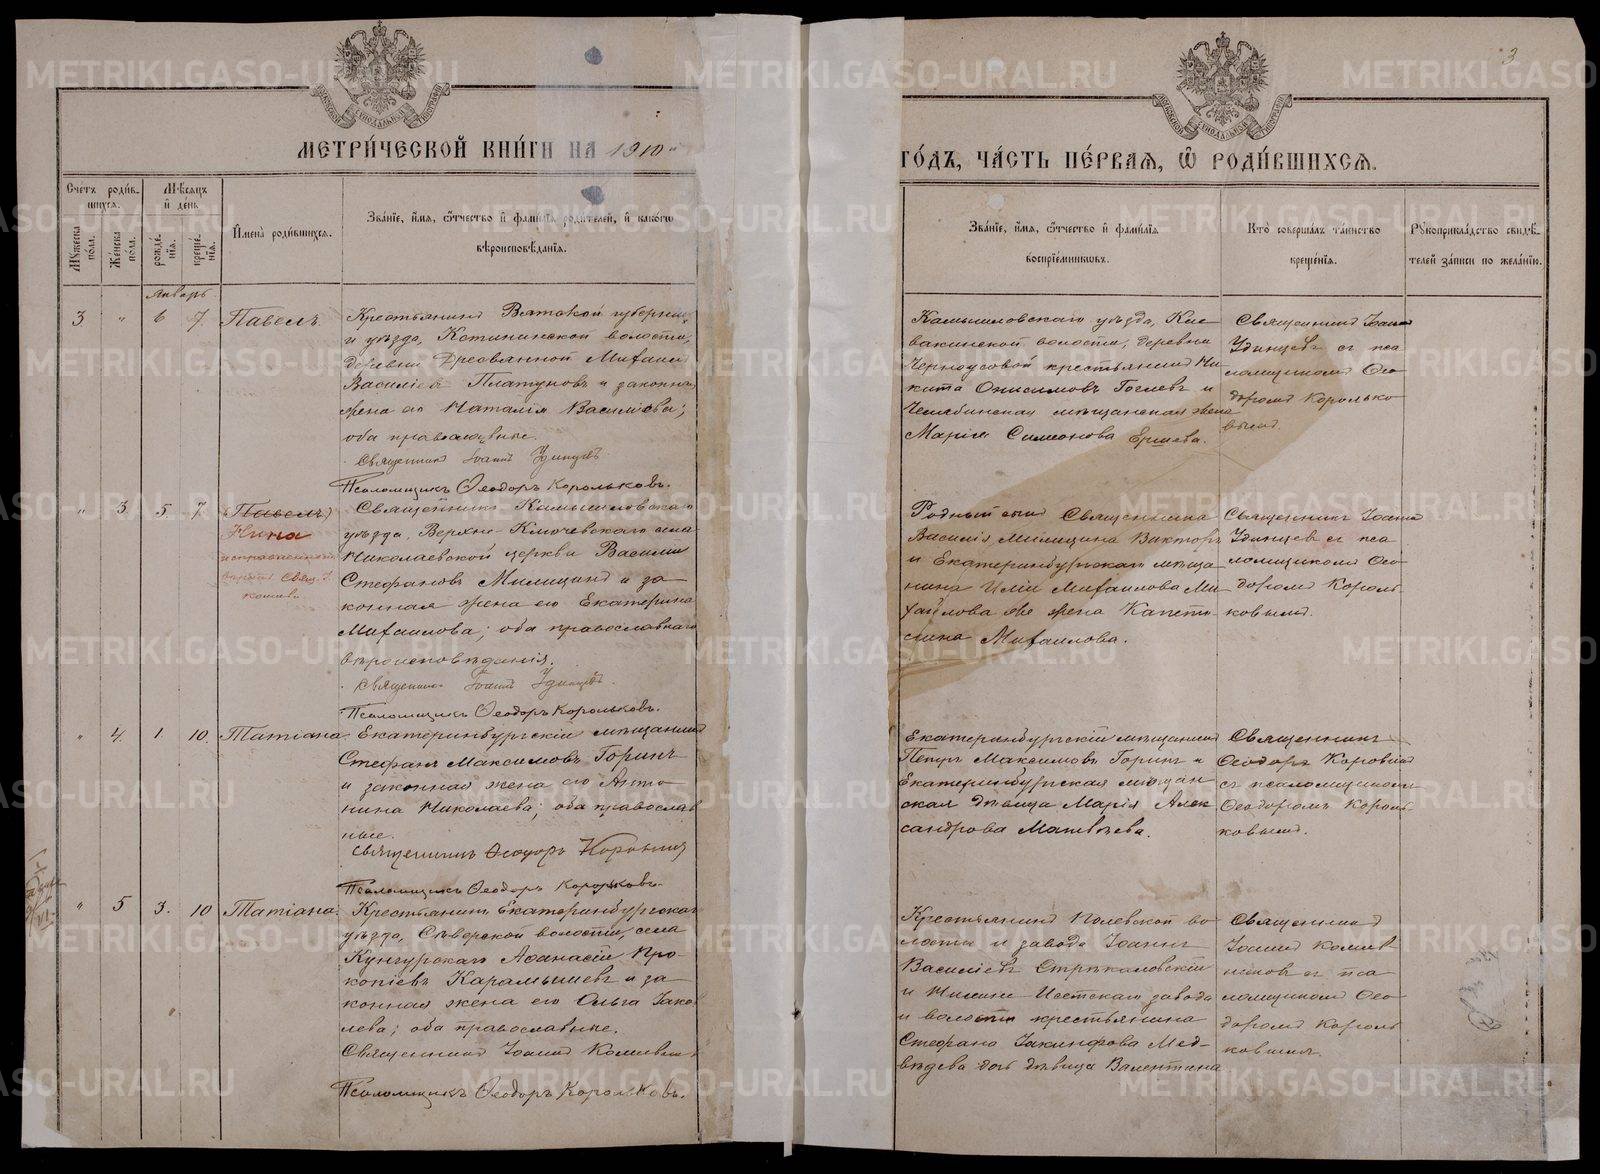 3
МЕТРИ́ЧЕСКОЙ КНИ́ГИ НА 1910
ГО́ДЪ, ЧА́СТЬ ПЕ́РВАѦ, Ѽ РОДИ́ВШИХСѦ.
Сче́тъ роди́вшихсѧ.
Мꙋ́жеска пола.
Же́нска пола.
Мѣ́сѧцъ и҆ день
рожде́нїѧ.
креще́нїѧ.
И҆мена̀ роди́вшихсѧ.
Зва́нїе, и҆́мѧ, ѻ҆́тчество и҆ фами́лїѧ роди́телей, и҆ како́гѡ
вѣроисповѣ́данїѧ.
Зва́нїе, и҆́мѧ, ѻ҆́тчество и҆ фами́лїѧ
воспрїе́мниковъ.
Кто̀ соверша́лъ та́инство
креще́нїѧ.
Рꙋкоприкла́дство свидѣ́телей за́писи по жела́нїю.
Январь
3. " 6 7. Павелъ.
Крестьянинъ Вятской губерніи
и уѣзда, Кстининской волости,
деревни Михаилъ
Василіевъ Платуновъ и законная
жена его Наталія Василіева;
оба православные.
Священникъ Іоаннъ Удинцевъ
Псаломщикъ Ѳеодоръ Корольковъ.
Камышловскаго уѣзда,
волости, деревни
Черноусовой крестьянинъ Никита
Онисимовъ и
Челябинская мѣщанская жена
Марія Симеонова Ершева.
Священникъ Іоаннъ
Удинцевъ съ псаломщикомъ
Ѳеодоромъ Корольковымъ.
" 3. 5 7. (Павелъ)
Нина
Священникъ Камышловскаго
уѣзда, Верхне-Ключевскаго села
Николаевской церкви Василій
Стефановъ Милицинъ и законная
жена его Екатерина
Михаилова; оба православнаго
вѣроисповѣданія.
Священникъ Іоаннъ Удинцевъ
Псаломщикъ Ѳеодоръ Корольковъ.
Родный сынъ Священника
Василія Милицина Викторъ
и Екатеринбургскаго мѣщанина
Михаилова
жена
Михаилова.
Священникъ Іоаннъ
Удинцевъ съ псаломщикомъ
Ѳеодоромъ Корольковымъ.
" 4. 1. 10. Татіана.
Екатеринбургскій мѣщанинъ
Стефанъ Максимовъ Горинъ
и законная жена его Антонина
Николаева; оба православные.
Священникъ Ѳеодоръ Коровинъ
Псаломщикъ Ѳеодоръ Корольковъ.
Екатеринбургскій мѣщанинъ
Петръ Максимовъ Горинъ и
Екатеринбургская мѣщанская
дѣвица Марія Александрова
Матвѣева.
Священникъ
Ѳеодоръ Коровинъ
съ псаломщикомъ
Ѳеодоромъ Корольковымъ.
" 5 3. 10 Татіана.
Крестьянинъ Екатеринбургскаго
уѣзда, Сѣверской волости, села
Кунгурскаго Аѳанасій Прокопіевъ
Карамышевъ и законная
жена его Ольга Іаковлева;
оба православные.
Священникъ Іоаннъ
Псаломщикъ Ѳеодоръ Корольковъ.
Крестьянинъ Полевской волости
и завода Іоаннъ
Василіевъ
и Исетскаго завода
и волости крестьянина
Стефана Іакинфова Медвѣдева
дочь дѣвица Валентина
Священникъ
Іоаннъ
съ псаломщикомъ
Ѳеодоромъ Корольковымъ.
METRIKI.GASO-URAL.RU